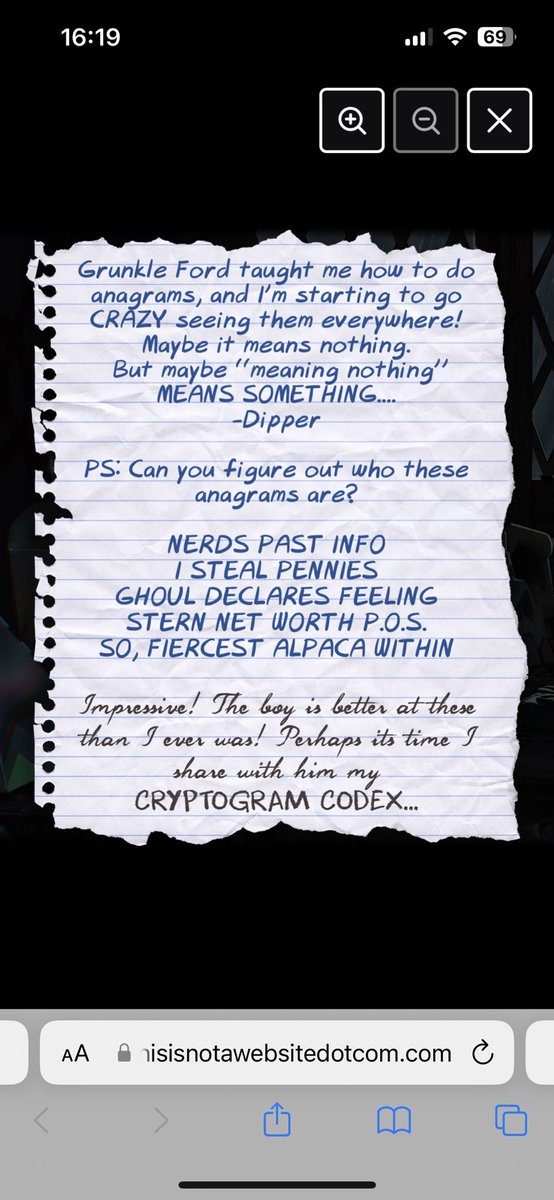 16:19
69
Grunkle Ford taught me how to do
anagrams, and I'm starting to go
CRAZY seeing them everywhere!
Maybe it means nothing.
But maybe "meaning nothing"
MEANS SOMETHING....
-Dipper
PS: Can you figure out who these
anagrams are?
NERDS PAST INFO
I STEAL PENNIES
GHOUL DECLARES FEELING
STERN NET WORTH P.O.S.
SO, FIERCEST ALPACA WITHIN
Impressive! The boy is better at these
than I ever was! Perhaps its time I
share with him my
CRYPTOGRAM CODEX...
AA isisnotawebsitedotcom.com